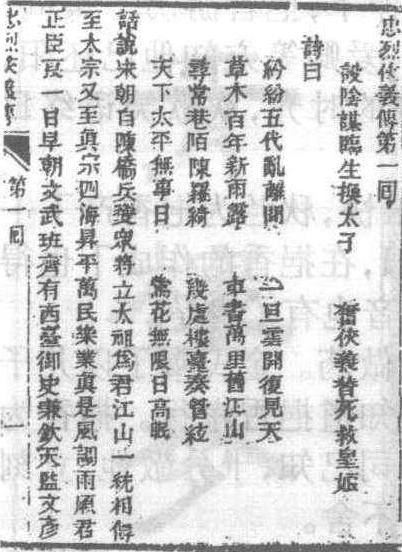 忠烈俠義傳第一回
設陰謀臨生換太子　奮俠義替死救皇娘
詩曰
紛紛五代亂離間　一旦雲開復見天
草木百年新雨露　車書萬里舊江山
尋常巷陌陳羅綺　幾處樓臺奏管絃
天下太平無事日　鶯花無限日高眠
話說宋朝自陳橋兵變衆將立太祖爲君江山一統相傳
至太宗又至眞宗四海昇平萬民樂業眞是風調雨順君
正臣良一日早朝文武班齊有西臺御史兼欽天監文彥
忠烈俠義傳　第一回　一